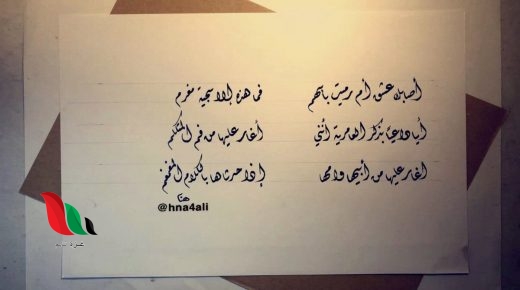 أصابك عشق أم رميت بأسهم فما هذه إلا سجية مغرم
أيا داعيا بذكر العامرية أنني أغار عليها من فم المتكلم
أغار عليها من أبيها وأمها إذا حدثاها بالكلام المغمغم
هنا
@hna4ali